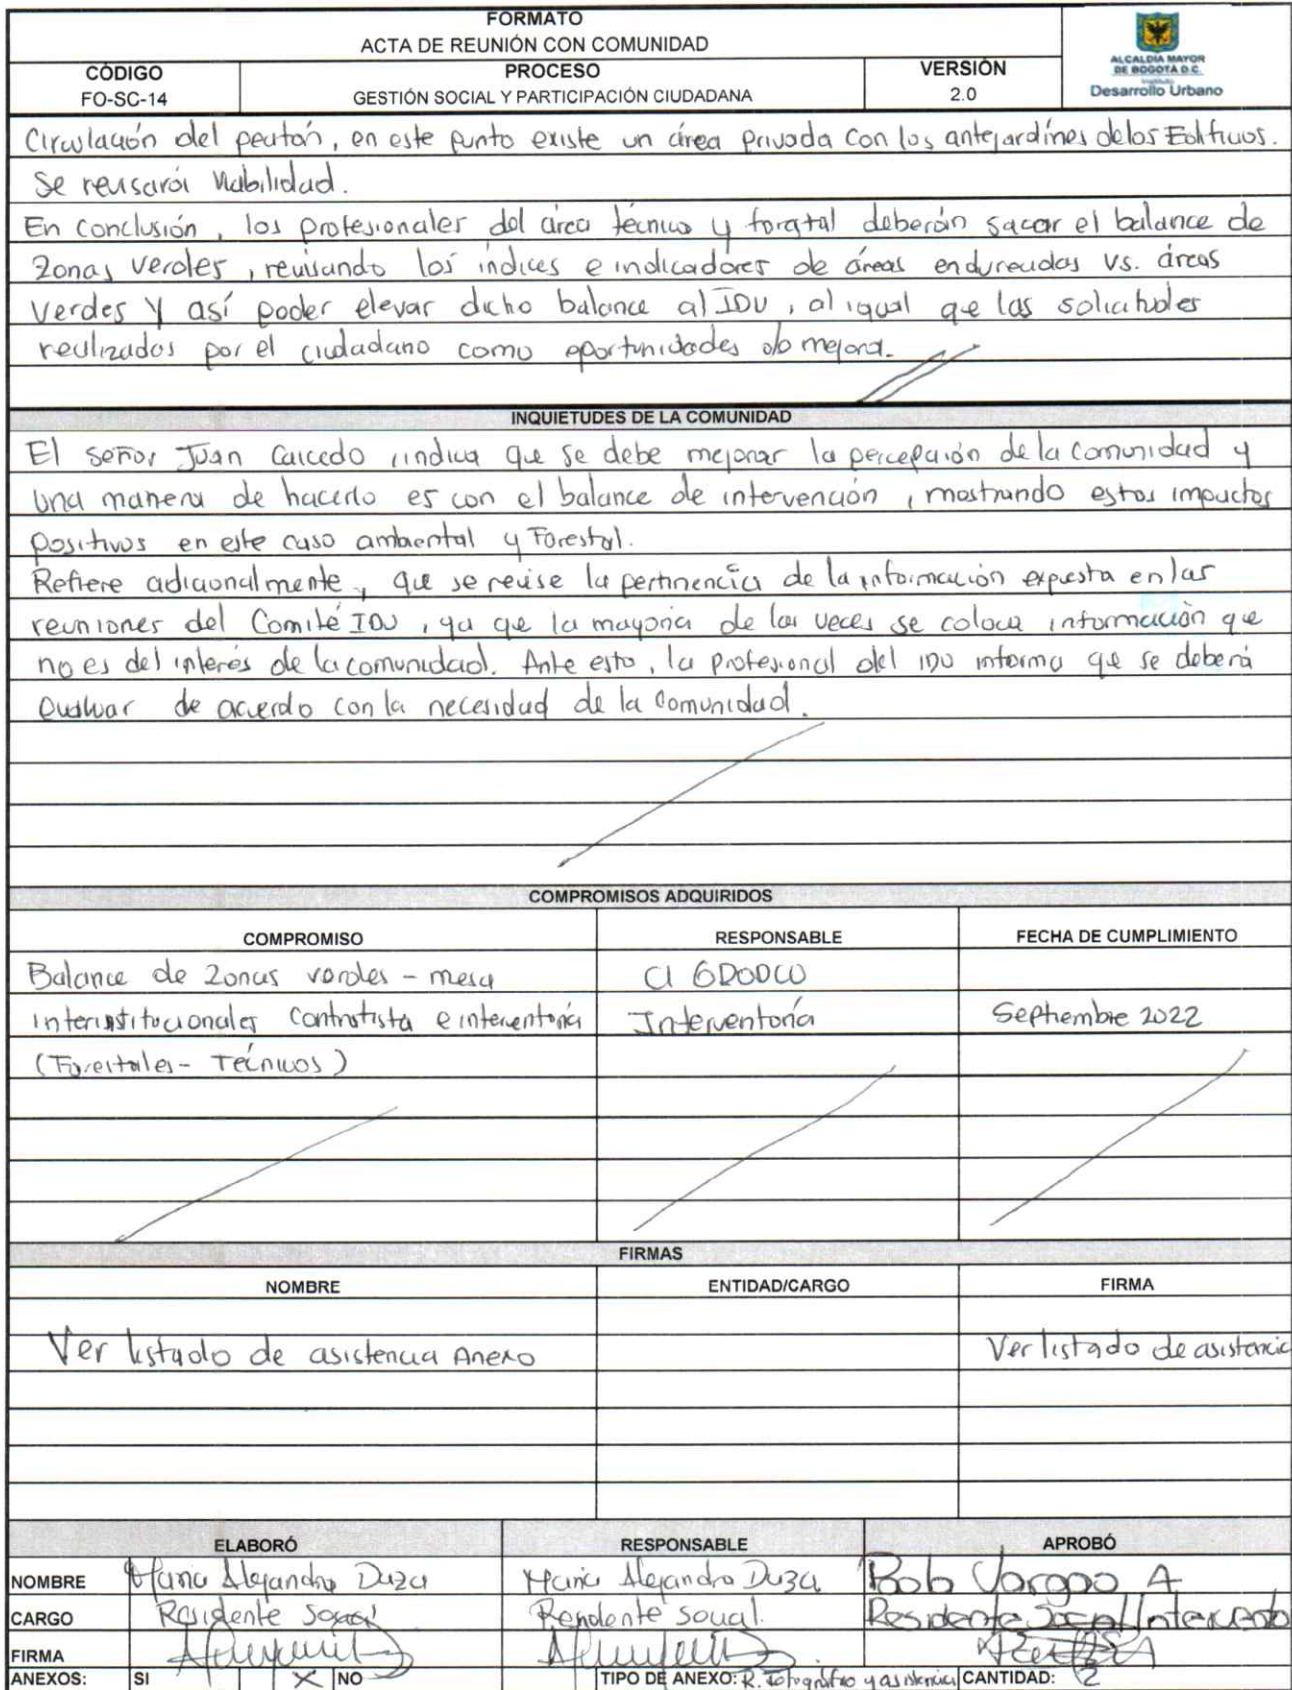 FORMATO
ACTA DE REUNIÓN CON COMUNIDAD
CÓDIGO PROCESO VERSIÓN
FO-SC-14 GESTIÓN SOCIAL Y PARTICIPACIÓN CIUDADANA 2.0
ALCALDÍA MAYOR
DE BOGOTÁ D.C.
Instituto
Desarrollo Urbano
Circulación del peatón, en este punto existe un área privada con los antejardínes de los Edificios.
Se revisará Viabilidad.
En conclusión, los profesionales del área técnico y forestal deberán sacar el balance de
zonas verdes, revisando los índices e indicadores de áreas endurecidas vs. áreas
verdes y así poder elevar dicho balance al IDU, al igual que las solicitudes
realizados por el ciudadano como oportunidades de mejora.
INQUIETUDES DE LA COMUNIDAD
El señor Juan Caicedo indica que se debe mejorar la percepción de la comunidad y
una manera de hacerlo es con el balance de intervención, mostrando estos impactos
positivos en este caso ambiental y Forestal.
Refiere adicionalmente, que se revise la pertinencia de la información expuesta en las
reuniones del Comité IDU, ya que la mayoria de las veces se coloca información que
no es del interés de la comunidad. Ante esto, la profesional del IDU informa que se deberá
evaluar de acuerdo con la necesidad de la Comunidad.
COMPROMISOS ADQUIRIDOS
COMPROMISO RESPONSABLE FECHA DE CUMPLIMIENTO
Balance de zonas verdes - mesa CI GDODCO
interinstitucionales Contratista e interventoría Interventoría Septiembre 2022
(Forestales - Técnicos)
FIRMAS
NOMBRE ENTIDAD/CARGO FIRMA
Ver listado de asistencia Anexo Ver listado de asistencia
ELABORÓ RESPONSABLE APROBÓ
NOMBRE Maria Alejandra Daza Maria Alejandra Daza Bob Vargas A
CARGO Residente Social Residente social. Residente Social Intervento
FIRMA
ANEXOS: SI X NO TIPO DE ANEXO: R. Fotográfico y asistencia CANTIDAD: 2